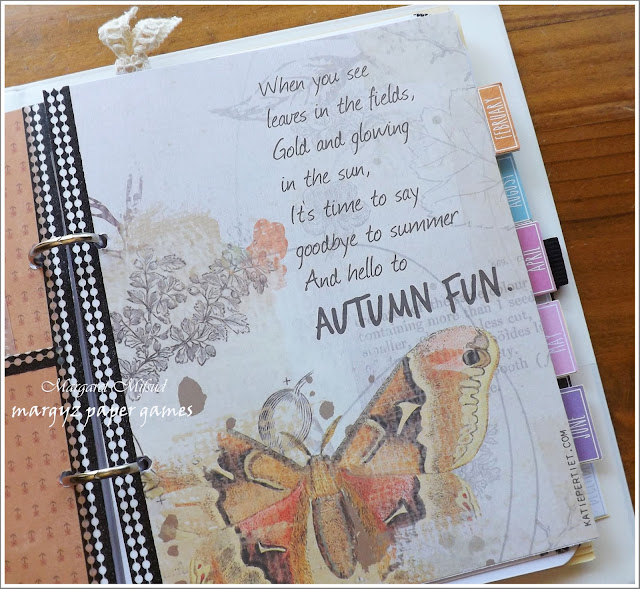 When you see
leaves in the fields,
Gold and glowing
in the sun,
It's time to say
goodbye to summer
And hello to
AUTUMN FUN.
FEBRUARY
AUGUST
APRIL
MAY
JUNE
KATIEPERTIET.COM
containing more than 1
Margaret Mifsud
margyz paper games